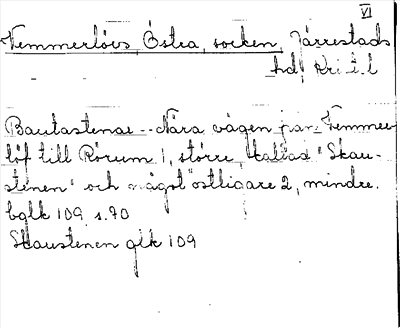 VI
Vemmerlövs, Östra, socken, Järrestads
hd, Kri. t. l
Bautastenar -- Nära vägen från Vemmer-
löf till Rörum 1, större, kallad "Skau-
stenen" och något östligare 2, mindre.
bglk 109 s. 90
Skaustenen glk 109